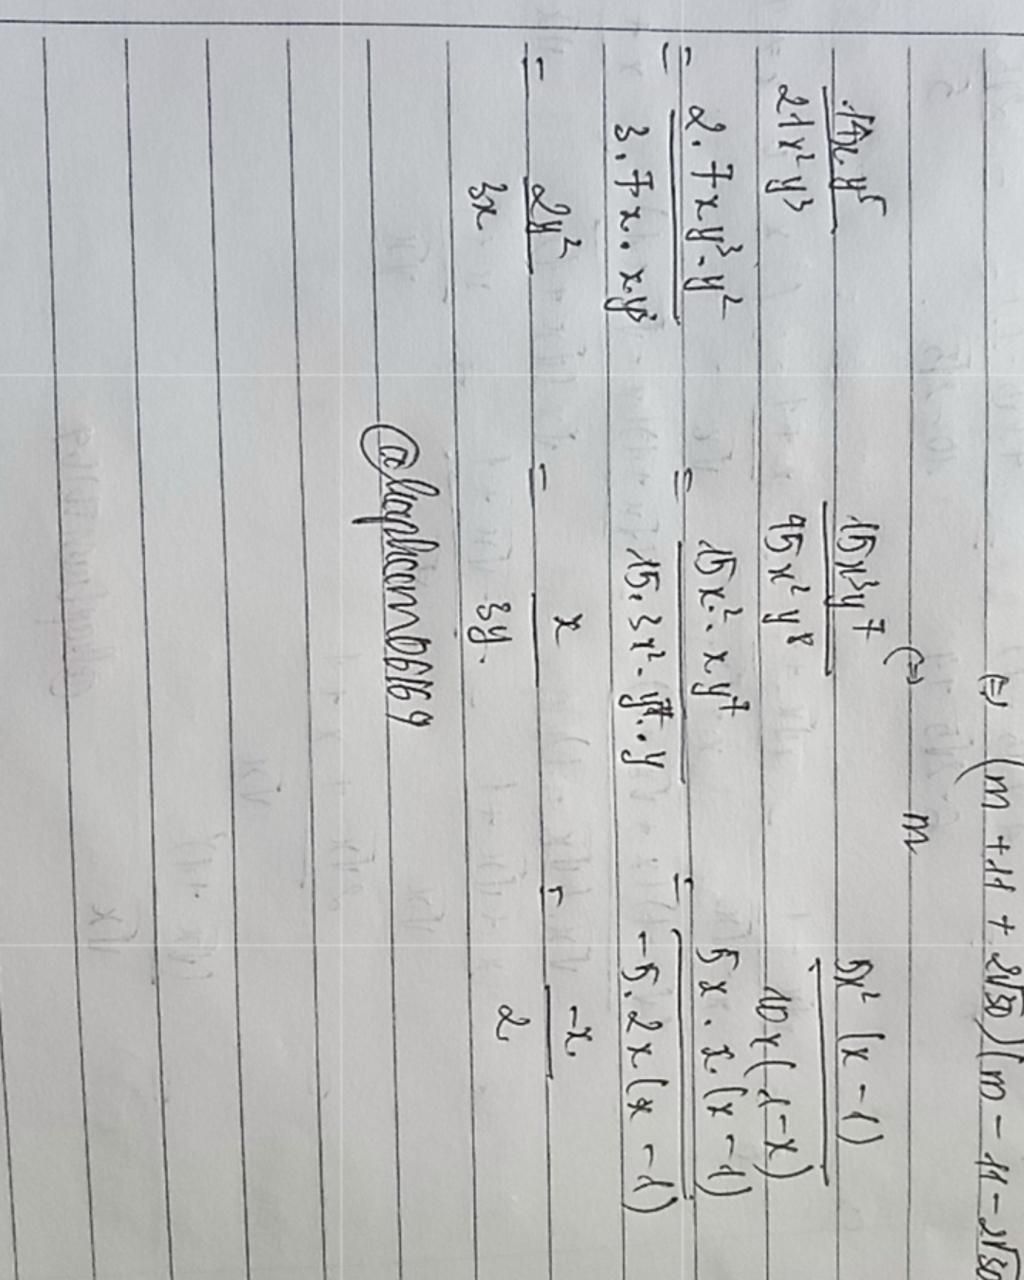 (=) (m + 11 + 2√30)(m - 11 - 2√30
(=) m
14x y⁵ / 21x² y³
15x³y⁷ / 45x² y⁸
5x² (x - 1) / 10x(1-x)
= 2.7xy³.y² / 3.7x.x.y³
= 15x².xy⁷ / 15.3x².y⁷.y
= 5x.x.(x - 1) / -5.2x(x - 1)
= 2y² / 3x
= x / 3y.
= -x / 2